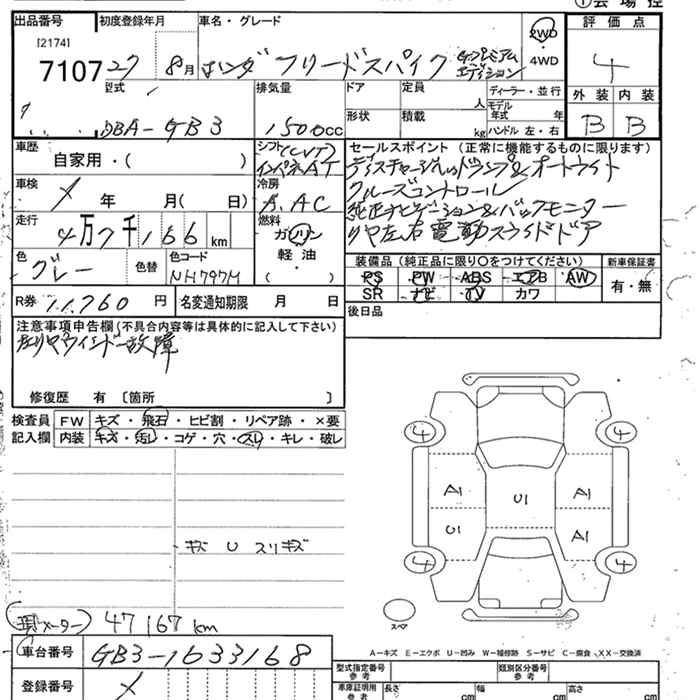 ①会場控
出品番号 初度登録年月 車名・グレード 評価点
[2174]
7107 27 8月 ホンダ フリードスパイク Gプレミアムエディション 2WD・4WD 4
型式 排気量 ドア 定員 人 ディーラー・並行 外装 内装
DBA-GB3 1500cc 形状 積載 kg モデル年式 年 ハンドル 左・右 B B
車歴 シフト(CVT) セールスポイント(正常に機能するものに限ります)
自家用・( ) インパネAT ディスチャージヘッドランプ&オートライト
車検 冷房 クルーズコントロール
年 月( 日) A.AC 純正ナビゲーション&バックモニター
走行 燃料 リヤ左右電動スライドドア
4万7千166km ガソリン
色 色替 色コード 軽油・
グレー NH797M ( )
装備品(純正品に限り○をつけてください) 新車保証書
PS PW ABS エアB AW 有・無
SR ナビ TV カワ
R券 11,760円 名変通知期限 月 日
後日品
注意事項申告欄(不具合内容等は具体的に記入して下さい)
左リヤウィンドー故障
修復歴 有〔箇所 〕
検査員記入欄 FW キズ・飛石・ヒビ割・リペア跡・×要
内装 キズ・汚し・コゲ・穴・スレ・キレ・破レ
4 4
A1 U1 A1
U1 A1
キズ U スリキズ
4 4
スペア
現メーター 47167km
A−キズ E−エクボ U−凹み W−補修跡 S−サビ C−腐食 XX−交換済
車台番号 GB3-1633168
型式指定番号 参考 類別区分番号 参考
登録番号 ×
車庫証明用 参考 長さ cm 幅 cm 高さ cm